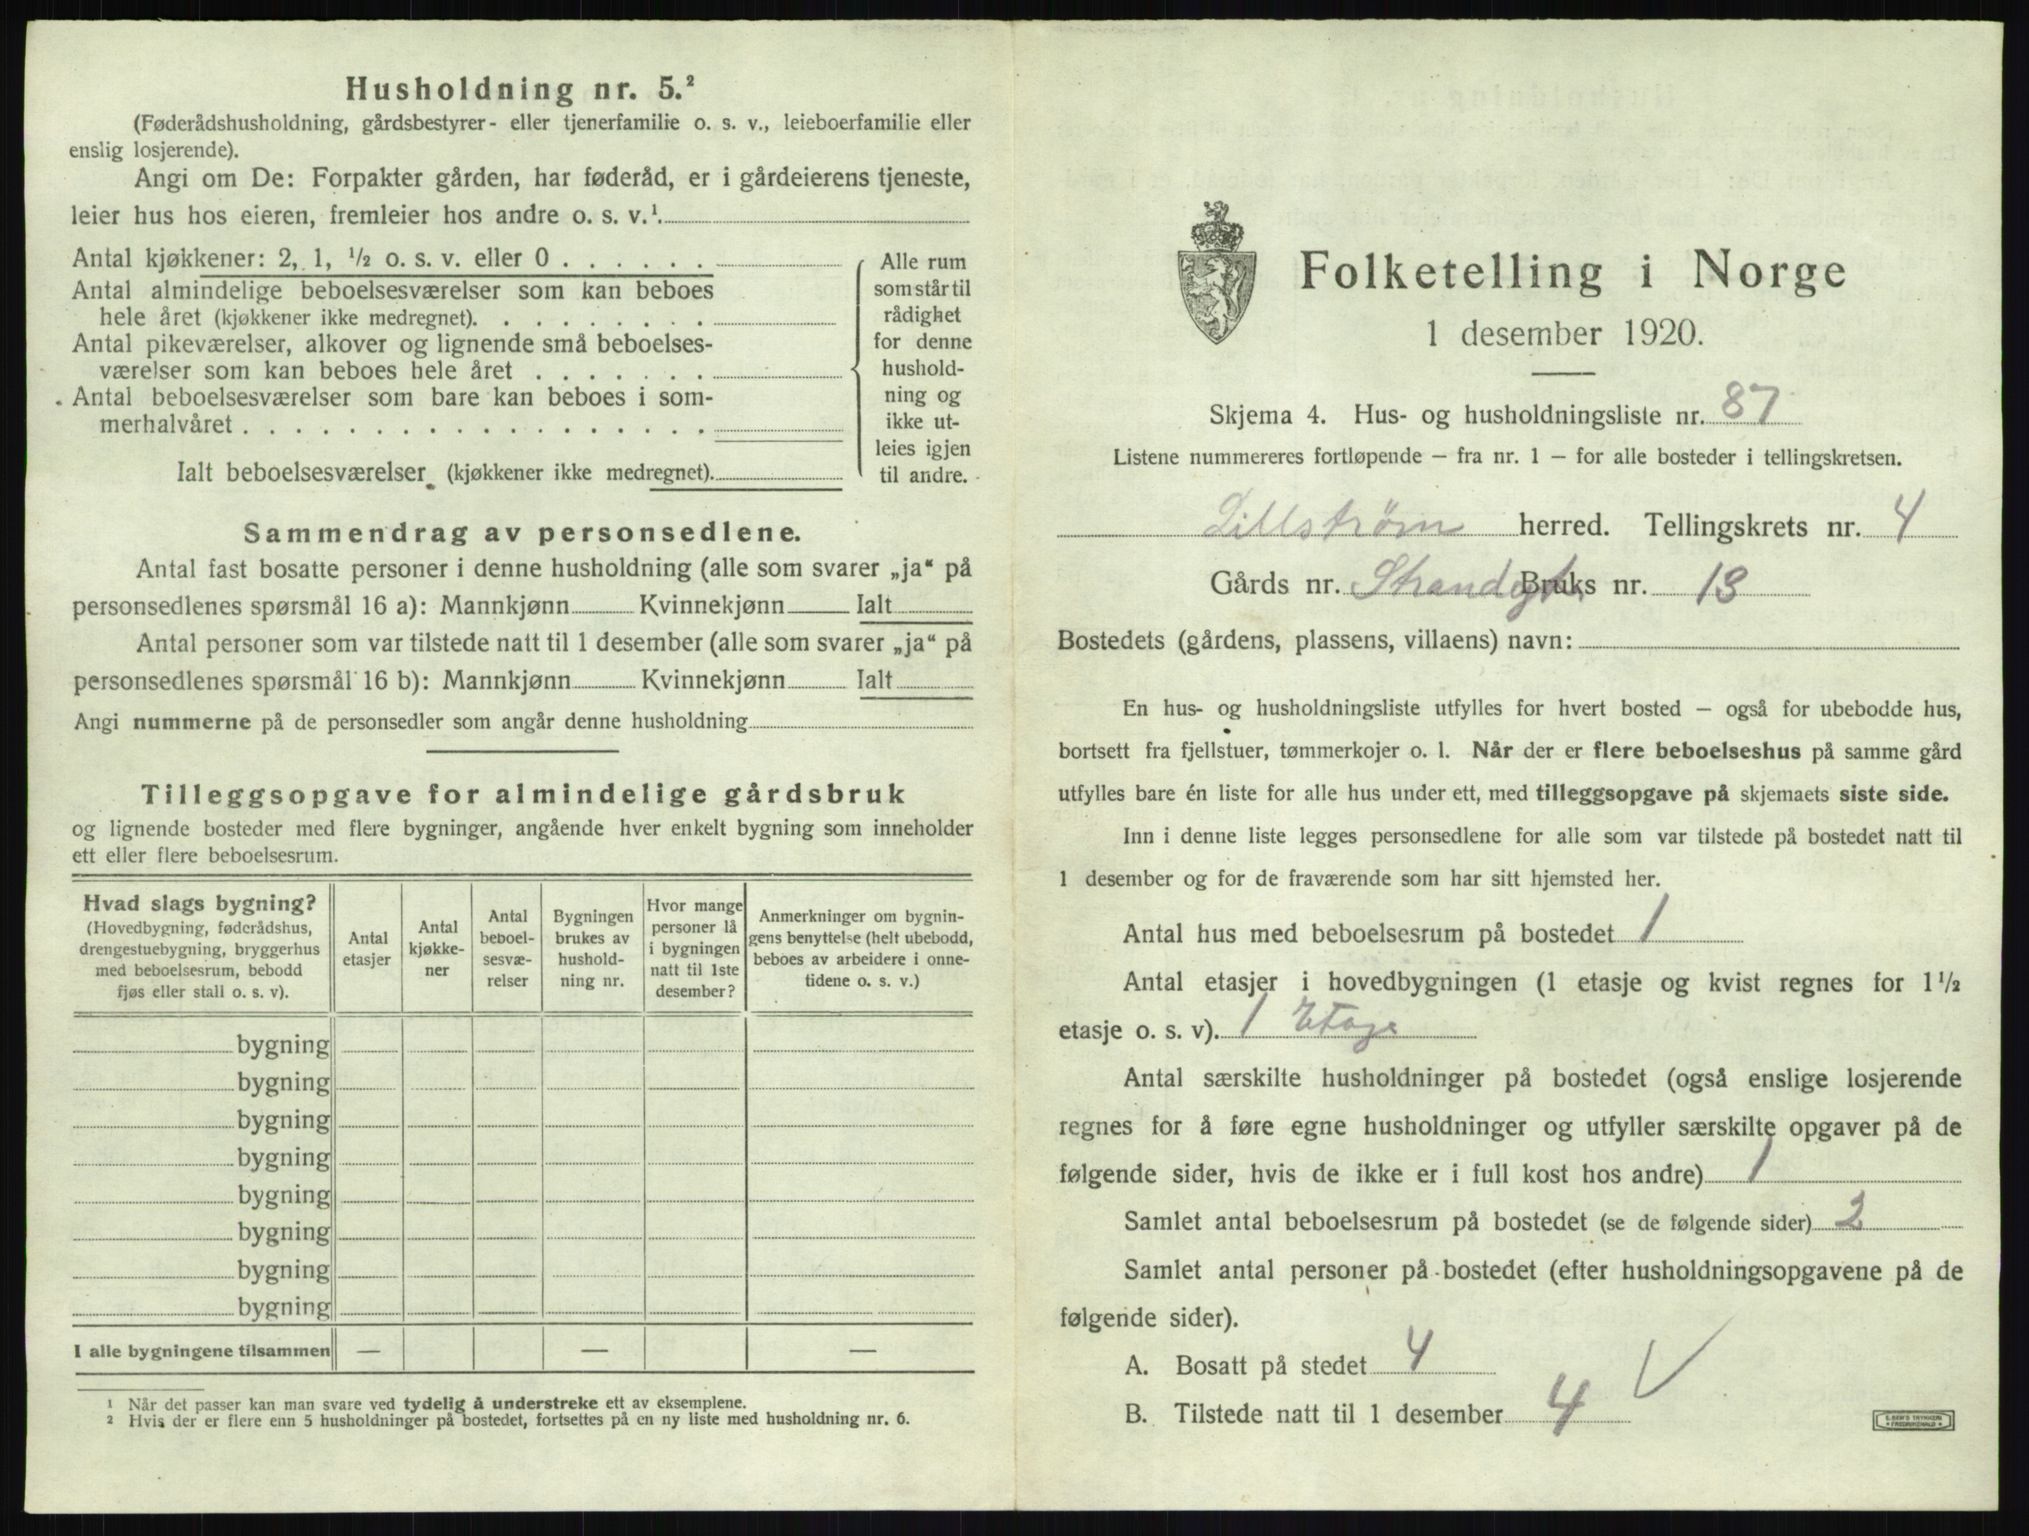 Husholdning nr. 5.²
(Føderådshusholdning, gårdsbestyrer- eller tjenerfamilie o. s. v., leieboerfamilie eller
enslig losjerende).
Angi om De: Forpakter gården, har føderåd, er i gårdeierens tjeneste,
leier hus hos eieren, fremleier hos andre o. s. v.¹
Antal kjøkkener: 2, 1, ½ o. s. v. eller 0 . . . . . .
Antal almindelige beboelsesværelser som kan beboes
hele året (kjøkkener ikke medregnet). . . . . . . . .
Antal pikeværelser, alkover og lignende små beboelses-
værelser som kan beboes hele året . . . . . . .
Antal beboelsesværelser som bare kan beboes i som-
merhalvåret . . . . . . . . . . . . . . . . . .
Ialt beboelsesværelser (kjøkkener ikke medregnet).
Alle rum
som står til
rådighet
for denne
hushold-
ning og
ikke ut-
leies igjen
til andre.
Sammendrag av personsedlene.
Antal fast bosatte personer i denne husholdning (alle som svarer „ja“ på
personsedlenes spørsmål 16 a): Mannkjønn Kvinnekjønn Ialt
Antal personer som var tilstede natt til 1 desember (alle som svarer „ja“ på
personsedlenes spørsmål 16 b): Mannkjønn Kvinnekjønn Ialt
Angi nummerne på de personsedler som angår denne husholdning
Tilleggsopgave for almindelige gårdsbruk
og lignende bosteder med flere bygninger, angående hver enkelt bygning som inneholder
ett eller flere beboelsesrum.
Hvad slags bygning?
(Hovedbygning, føderådshus,
drengestuebygning, bryggerhus
med beboelsesrum, bebodd
fjøs eller stall o. s. v).
Antal
etasjer
Antal
kjøkke-
ner
Antal
beboel-
sesvæ-
relser
Bygningen
brukes av
hushold-
ning nr.
Hvor mange
personer lå
i bygningen
natt til 1ste
desember?
Anmerkninger om bygnin-
gens benyttelse (helt ubebodd,
beboes av arbeidere i onne-
tidene o. s. v.)
bygning
bygning
bygning
bygning
bygning
bygning
bygning
bygning
I alle bygningene tilsammen — — —
¹ Når det passer kan man svare ved tydelig å understreke ett av eksemplene.
² Hvis der er flere enn 5 husholdninger på bostedet, fortsettes på en ny liste med husholdning nr. 6.
Folketelling i Norge
1 desember 1920.
Skjema 4. Hus- og husholdningsliste nr. 87
Listene nummereres fortløpende — fra nr. 1 — for alle bosteder i tellingskretsen.
Lillstrøm herred. Tellingskrets nr. 4
Gårds nr. Strandgt. Bruks nr. 13
Bostedets (gårdens, plassens, villaens) navn:
En hus- og husholdningsliste utfylles for hvert bosted — også for ubebodde hus,
bortsett fra fjellstuer, tømmerkojer o. l. Når der er flere beboelseshus på samme gård
utfylles bare én liste for alle hus under ett, med tilleggsopgave på skjemaets siste side.
Inn i denne liste legges personsedlene for alle som var tilstede på bostedet natt til
1 desember og for de fraværende som har sitt hjemsted her.
Antal hus med beboelsesrum på bostedet 1
Antal etasjer i hovedbygningen (1 etasje og kvist regnes for 1½
etasje o. s. v). 1 Etage
Antal særskilte husholdninger på bostedet (også enslige losjerende
regnes for å føre egne husholdninger og utfyller særskilte opgaver på de
følgende sider, hvis de ikke er i full kost hos andre) 1
Samlet antal beboelsesrum på bostedet (se de følgende sider) 2
Samlet antal personer på bostedet (efter husholdningsopgavene på de
følgende sider).
A. Bosatt på stedet 4
B. Tilstede natt til 1 desember 4